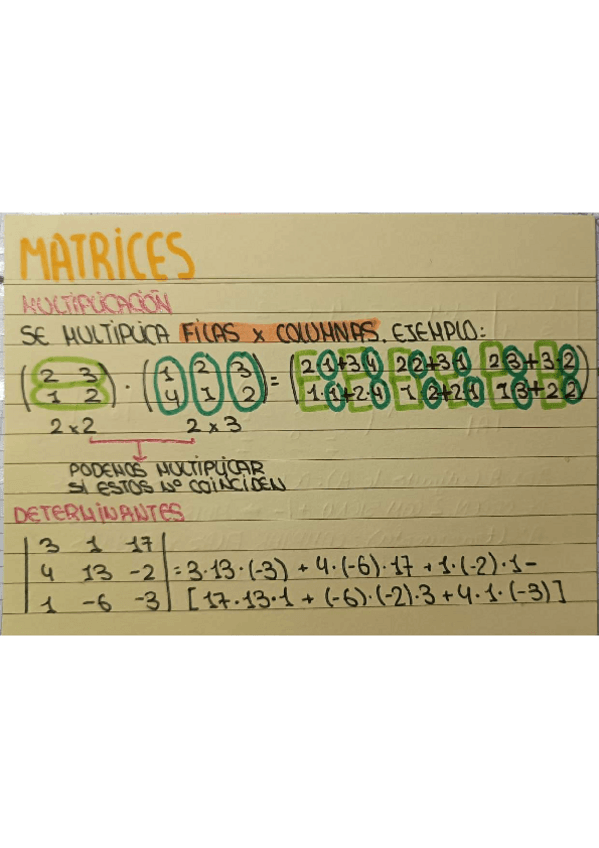 MATRICES
MULTIPLICACIÓN
SE MULTIPLICA FILAS x COLUMNAS. EJEMPLO:
(2 3) · (1 2 3) = (2·1+3·4 2·2+3·1 2·3+3·2)
(1 2) (4 1 2) (1·1+2·4 1·2+2·1 1·3+2·2)
2x2 2x3
PODEMOS MULTIPLICAR
SI ESTOS Nº COINCIDEN
DETERMINANTES
| 3 1 17 |
| 4 13 -2 | = 3·13·(-3) + 4·(-6)·17 + 1·(-2)·1 -
| 1 -6 -3 | [17·13·1 + (-6)·(-2)·3 + 4·1·(-3)]